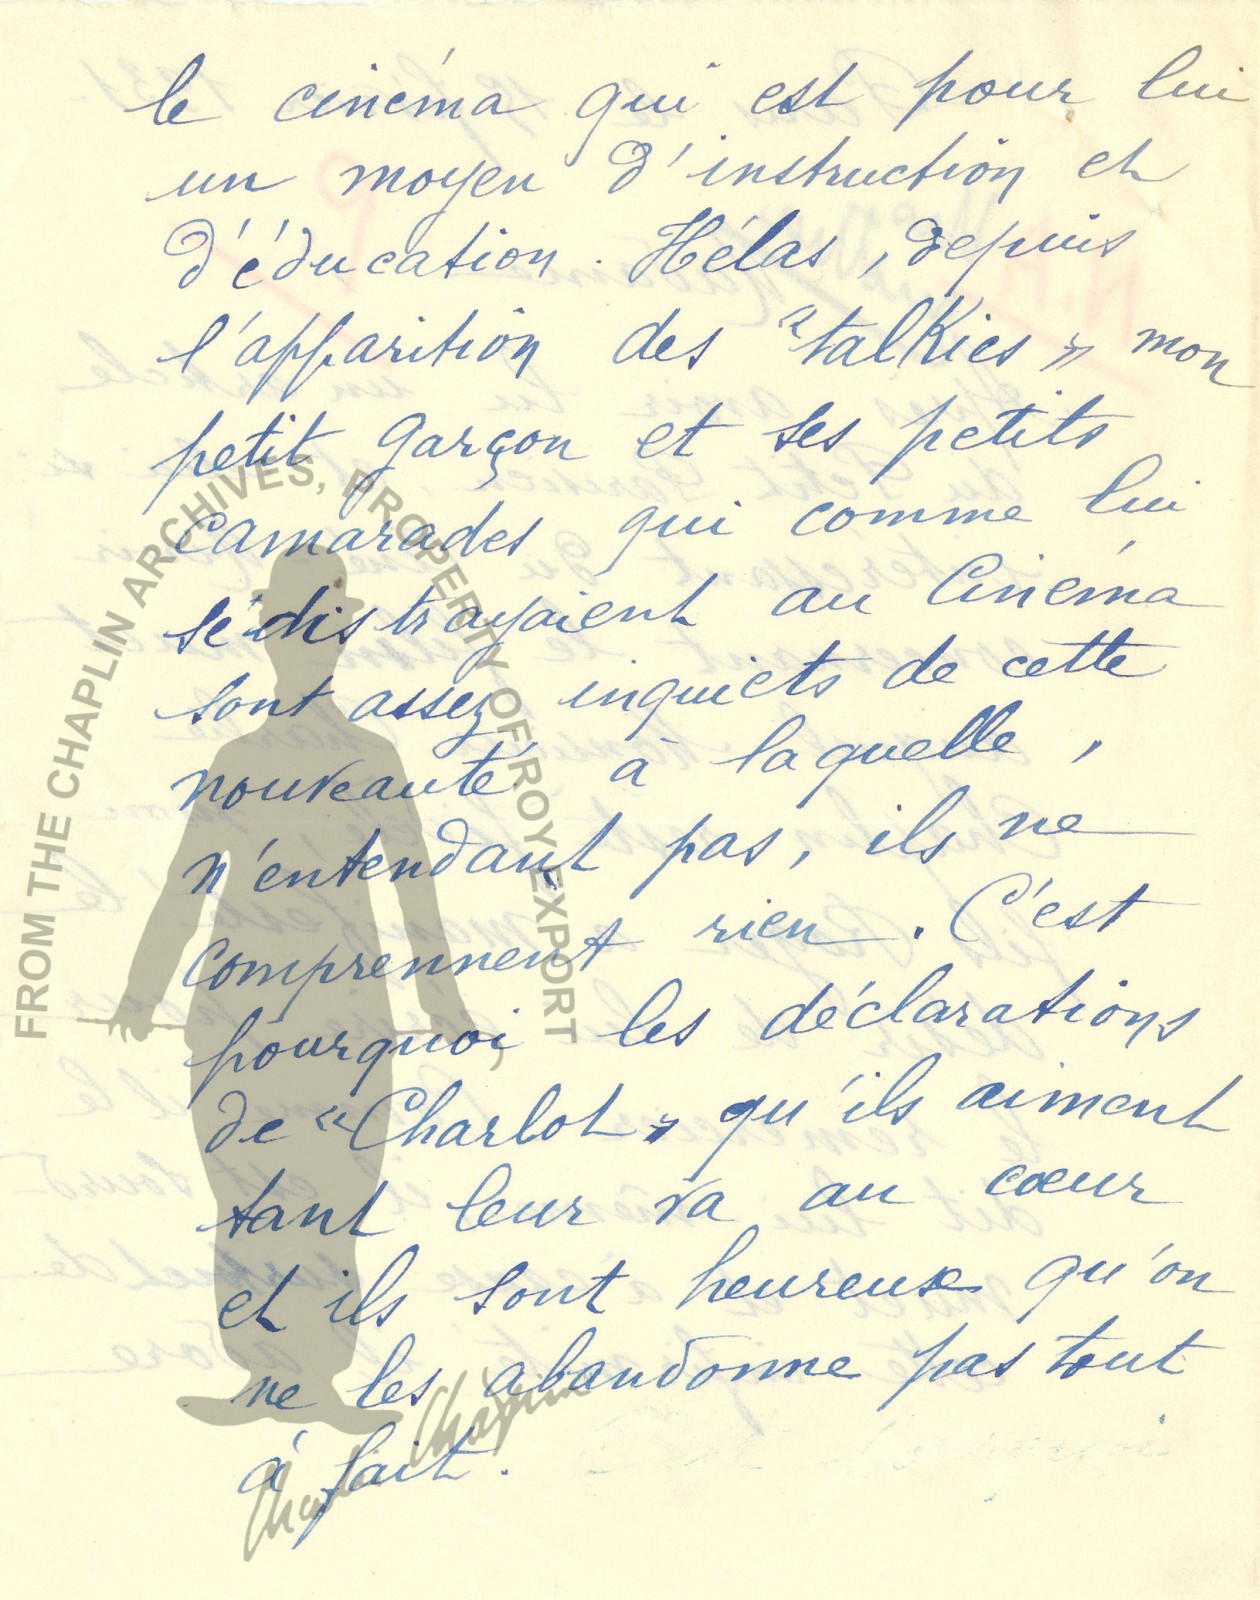 le cinéma qui est pour lui
un moyen d'instruction et
d'éducation. Hélas, depuis
l'apparition des "talkies" mon
petit garçon et ses petits
camarades qui comme lui
se distrayaient au Cinéma
sont assez inquiets de cette
nouveauté à laquelle,
n'entendant pas, ils ne
comprennent rien. C'est
pourquoi les déclarations
de "Charlot" qu'ils aiment
tant leur va au cœur
et ils sont heureux qu'on
ne les abandonne pas tout
à fait.
FROM THE CHAPLIN ARCHIVES, PROPERTY OF ROY EXPORT
Charlie Chaplin